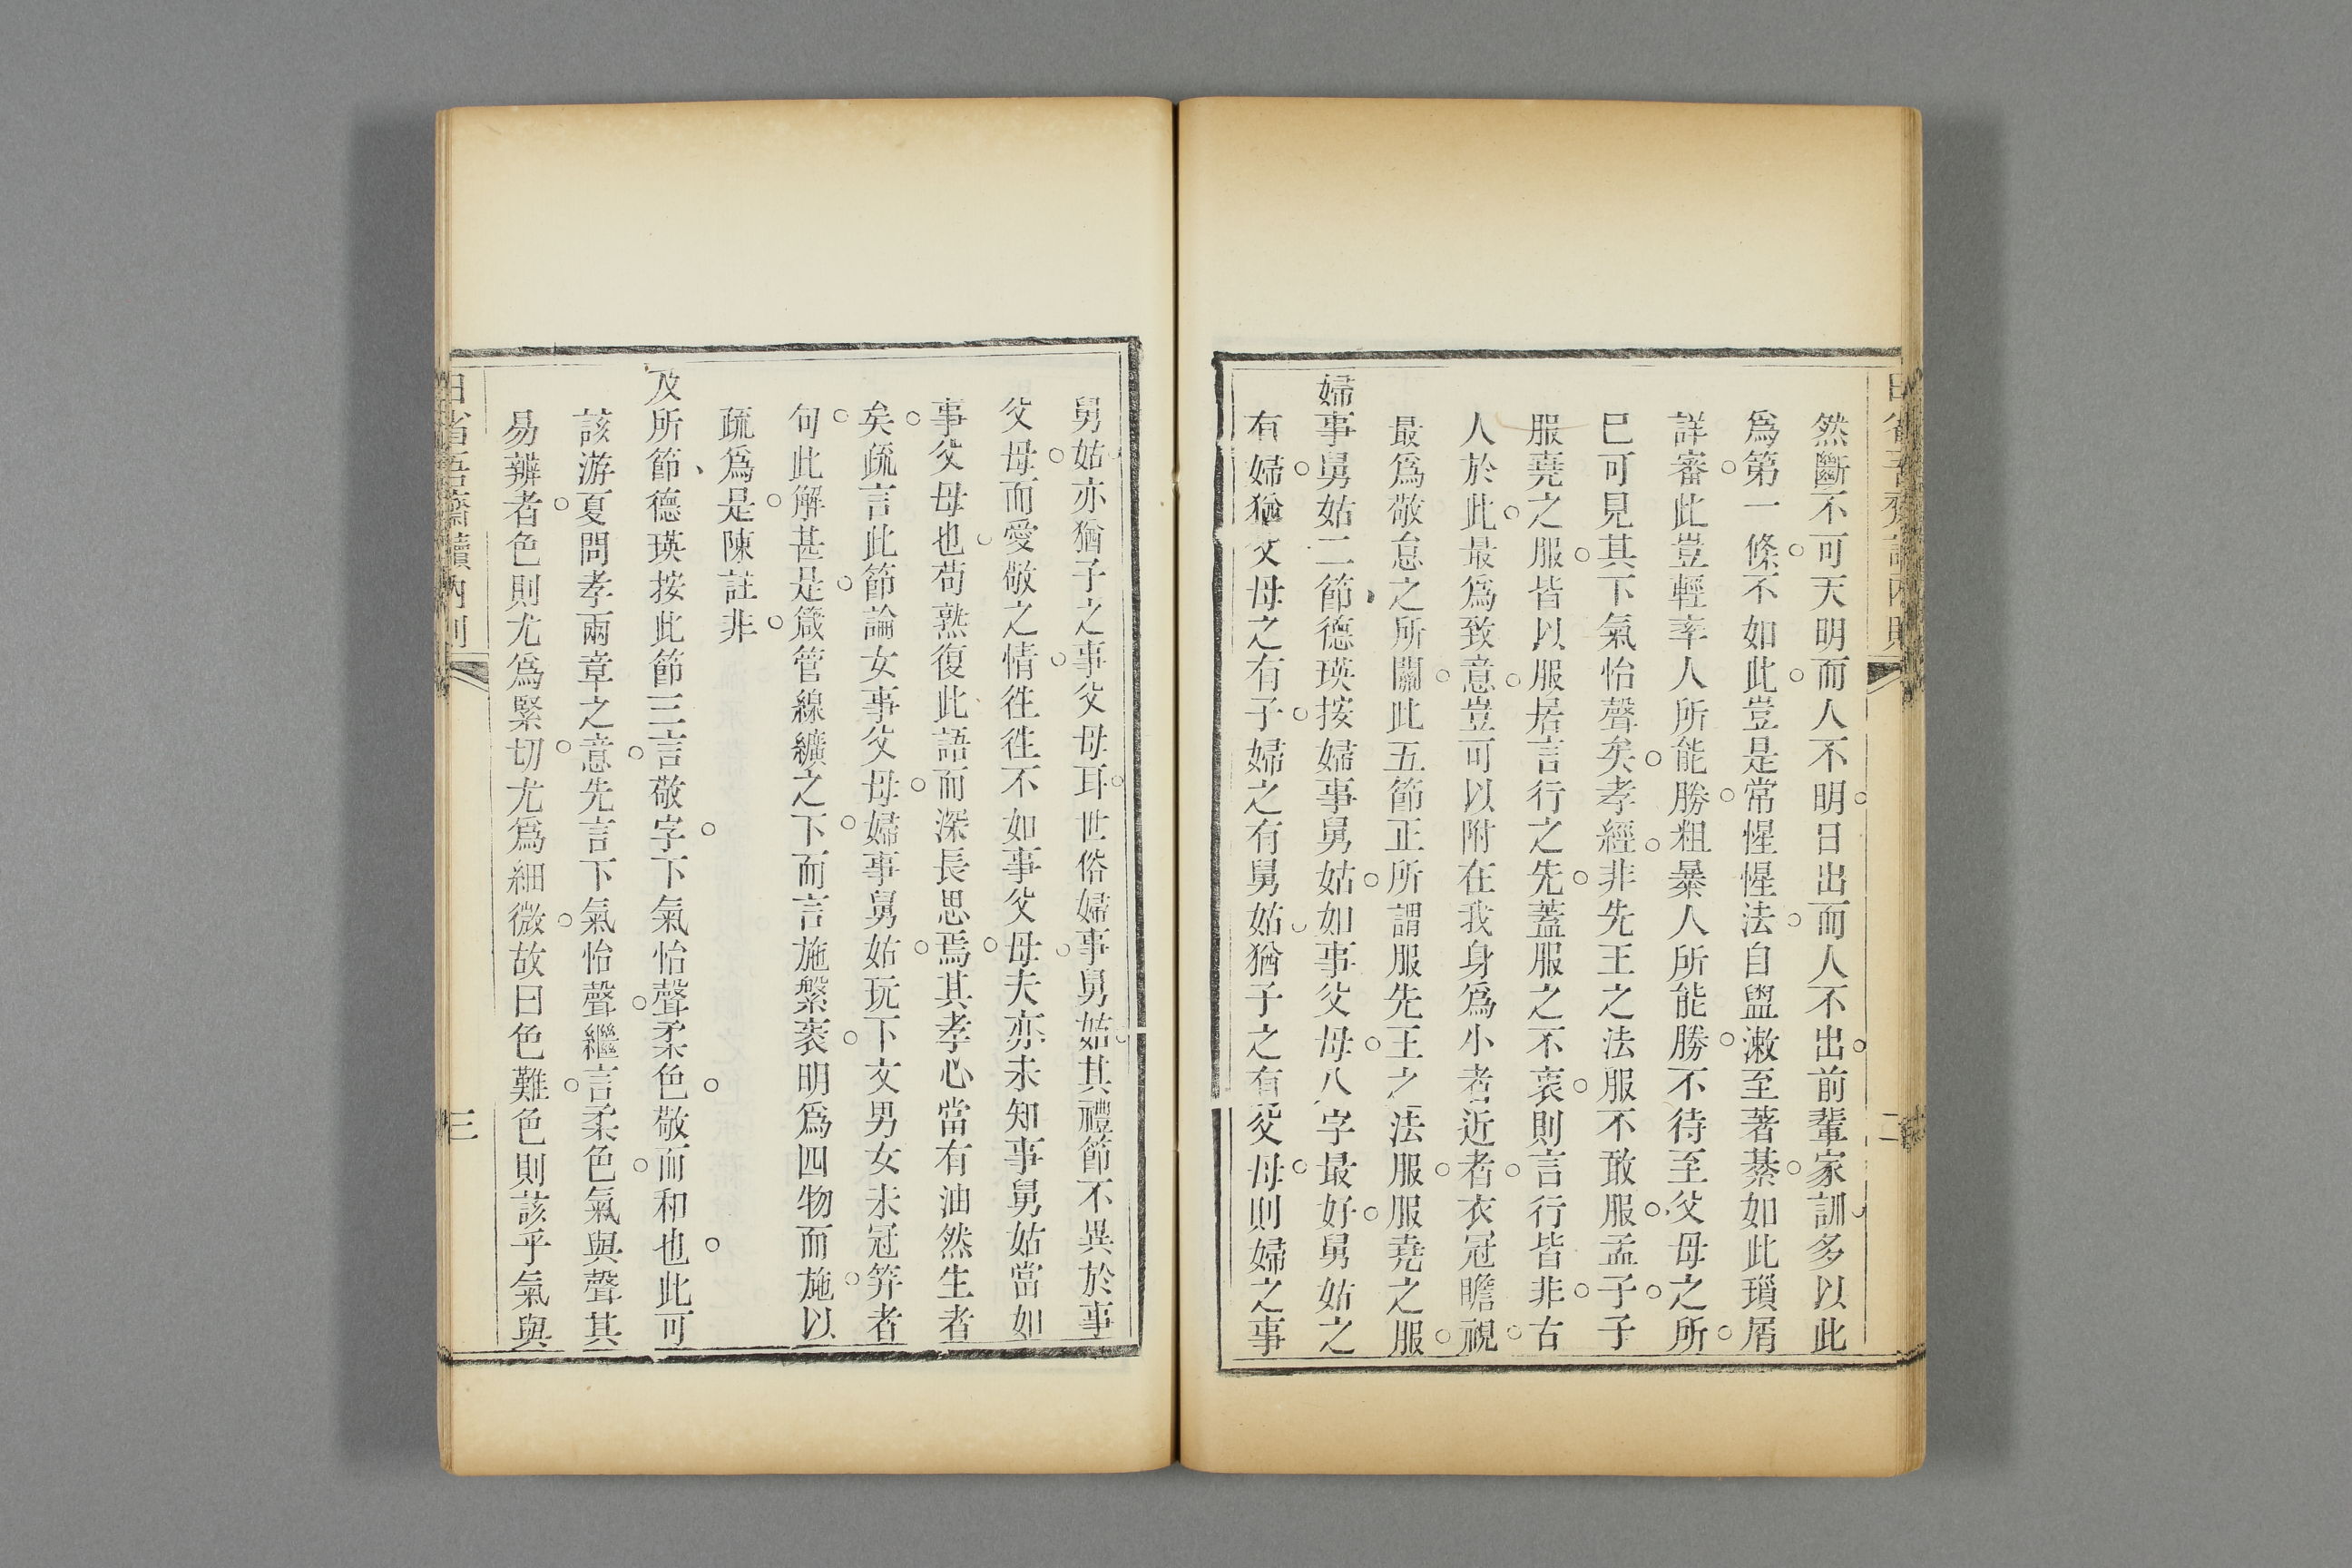 然斷不可天明而人不明日出而人不出前輩家訓多以此
爲第一條不如此豈是常惺惺法自盥漱至著綦如此瑣屑
詳審此豈輕率人所能勝粗暴人所能勝不待至父母之所
已可見其下氣怡聲矣孝經非先王之法服不敢服孟子子
服堯之服皆以服居言行之先蓋服之不衷則言行皆非古
人於此最爲致意豈可以附在我身爲小者近者衣冠瞻視
最爲敬怠之所關此五節正所謂服先王之法服服堯之服
婦事舅姑二節德瑛按婦事舅姑如事父母八字最好舅姑之
有婦猶父母之有子婦之有舅姑猶子之有父母則婦之事
二
舅姑亦猶子之事父母耳世俗婦事舅姑其禮節不異於事
父母而愛敬之情徃徃不如事父母夫亦未知事舅姑當如
事父母也苟熟復此語而深長思焉其孝心當有油然生者
矣疏言此節論女事父母婦事舅姑玩下文男女未冠笄者
句此解甚是箴管線纊之下而言施縏袠明爲四物而施以
疏爲是陳註非
及所節德瑛按此節三言敬字下氣怡聲柔色敬而和也此可
該游夏問孝兩章之意先言下氣怡聲繼言柔色氣與聲其
易辨者色則尤爲緊切尤爲細微故曰色難色則該乎氣與
日省吾齋續內則
三